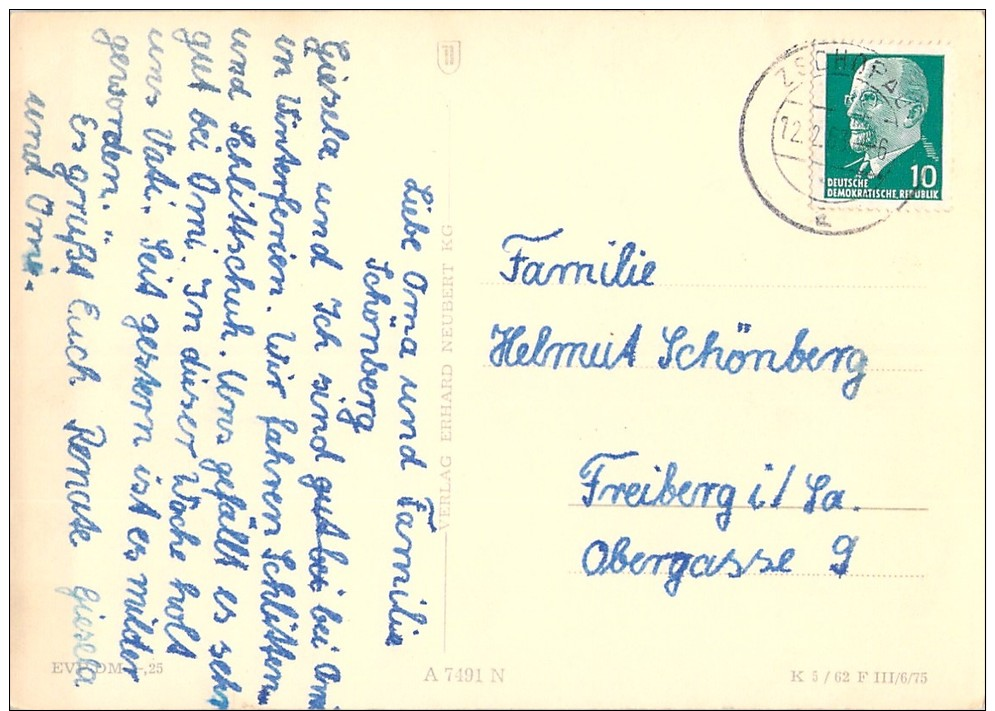 Liebe Oma und Familie
Schönberg
Giesela und Ich sind gut bei bei Omi
in Winterferien. Wir fahren Schlitten
und Schlittschuh. Uns gefällt es sehr
gut bei Omi. In dieser Woche holt
uns Vati. Seit gestern ist es milder
geworden."
Es grüßt Euch Renate Giesela
und Omi.
VERLAG ERHARD NEUBERT KG
ZSCHOPAU
DEUTSCHE
DEMOKRATISCHE REPUBLIK
10
Familie
Helmut Schönberg
Freiberg i/Sa.
Obergasse 9
EVP DM -,25
A 7491 N
K 5/62 F III/6/75